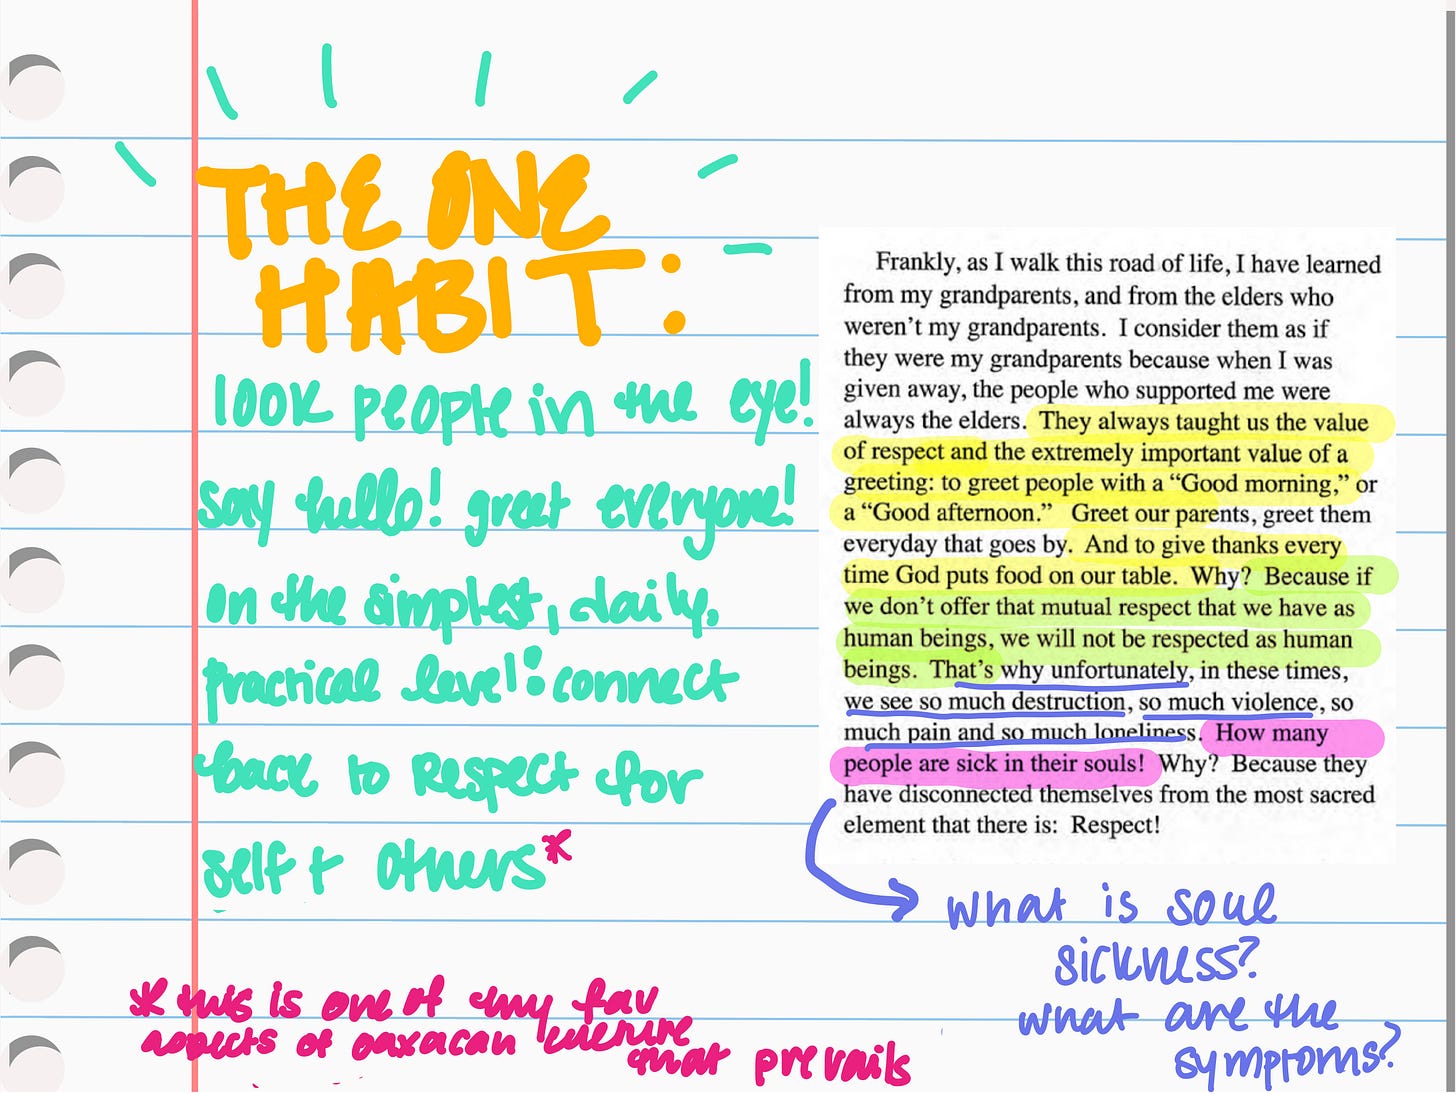 THE ONE
HABIT:
look people in the eye!
say hello! greet everyone!
on the simplest, daily,
practical level: connect
back to Respect for
self + others*
* this is one of my fav
aspects of oaxacan culture
that prevails
Frankly, as I walk this road of life, I have learned
from my grandparents, and from the elders who
weren't my grandparents. I consider them as if
they were my grandparents because when I was
given away, the people who supported me were
always the elders. They always taught us the value
of respect and the extremely important value of a
greeting: to greet people with a “Good morning,” or
a “Good afternoon.” Greet our parents, greet them
everyday that goes by. And to give thanks every
time God puts food on our table. Why? Because if
we don't offer that mutual respect that we have as
human beings, we will not be respected as human
beings. That's why unfortunately, in these times,
we see so much destruction, so much violence, so
much pain and so much loneliness. How many
people are sick in their souls! Why? Because they
have disconnected themselves from the most sacred
element that there is: Respect!
what is soul
sickness?
what are the
symptoms?